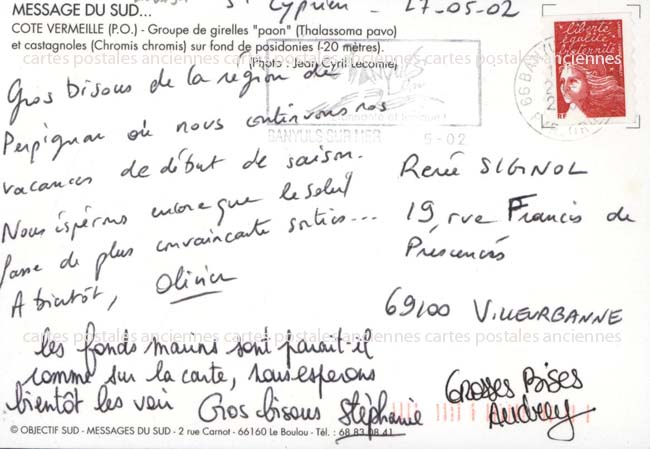 MESSAGE DU SUD...
St Cyprien - 17-05-02
COTE VERMEILLE (P.O.) - Groupe de girelles "paon" (Thalassoma pavo)
et castagnoles (Chromis chromis) sur fond de posidonies (-20 mètres).
(Photo : Jean Cyril Lecomte)
liberté
égalité
fraternité
RF
66 BANYULS
BANYULS SUR MER
5-02
Gros bisous de la région de
Perpignan où nous continuons nos
vacances de début de saison.
Nous espérons encore que le soleil
fasse de plus convaincante sorties...
A bientôt, Olivier
Renée SIGNOL
19, rue Francis de
Préssencé
69100 VILLEURBANNE
cartes postales anciennes cartes postales anciennes cartes postales anciennes
cartes postales anciennes cartes postales anciennes cartes postales anciennes
les fonds marins sont parait-il
comme sur la carte, nous esperons
bientôt les voir Gros bisous Stéphanie
Grosses Bises
Audrey
© OBJECTIF SUD - MESSAGES DU SUD - 2 rue Carnot - 66160 Le Boulou - Tél. : 68 83 08 41